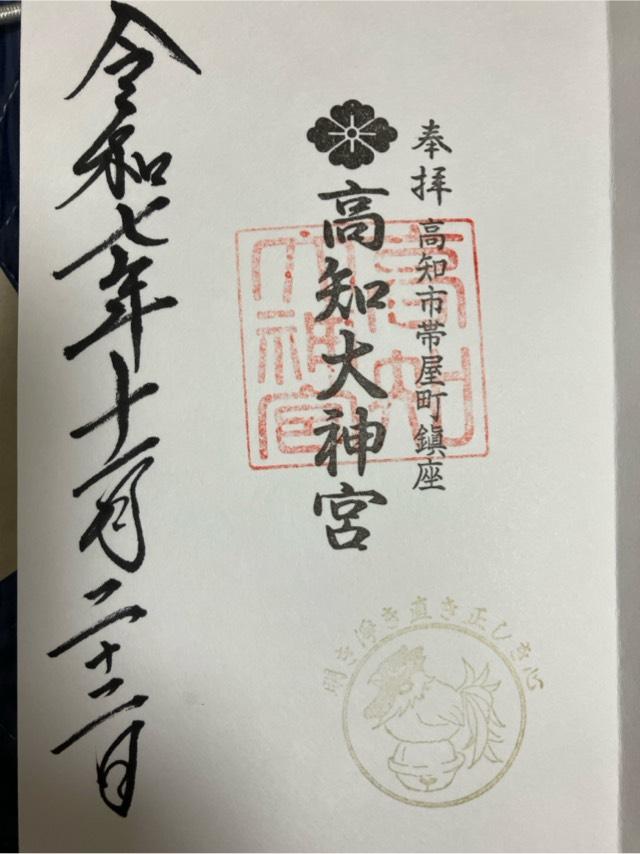 奉拝 高知市帯屋町鎮座
高知大神宮
高知大神宮
令和七年十一月二十二日
明き浄き直き正しき心